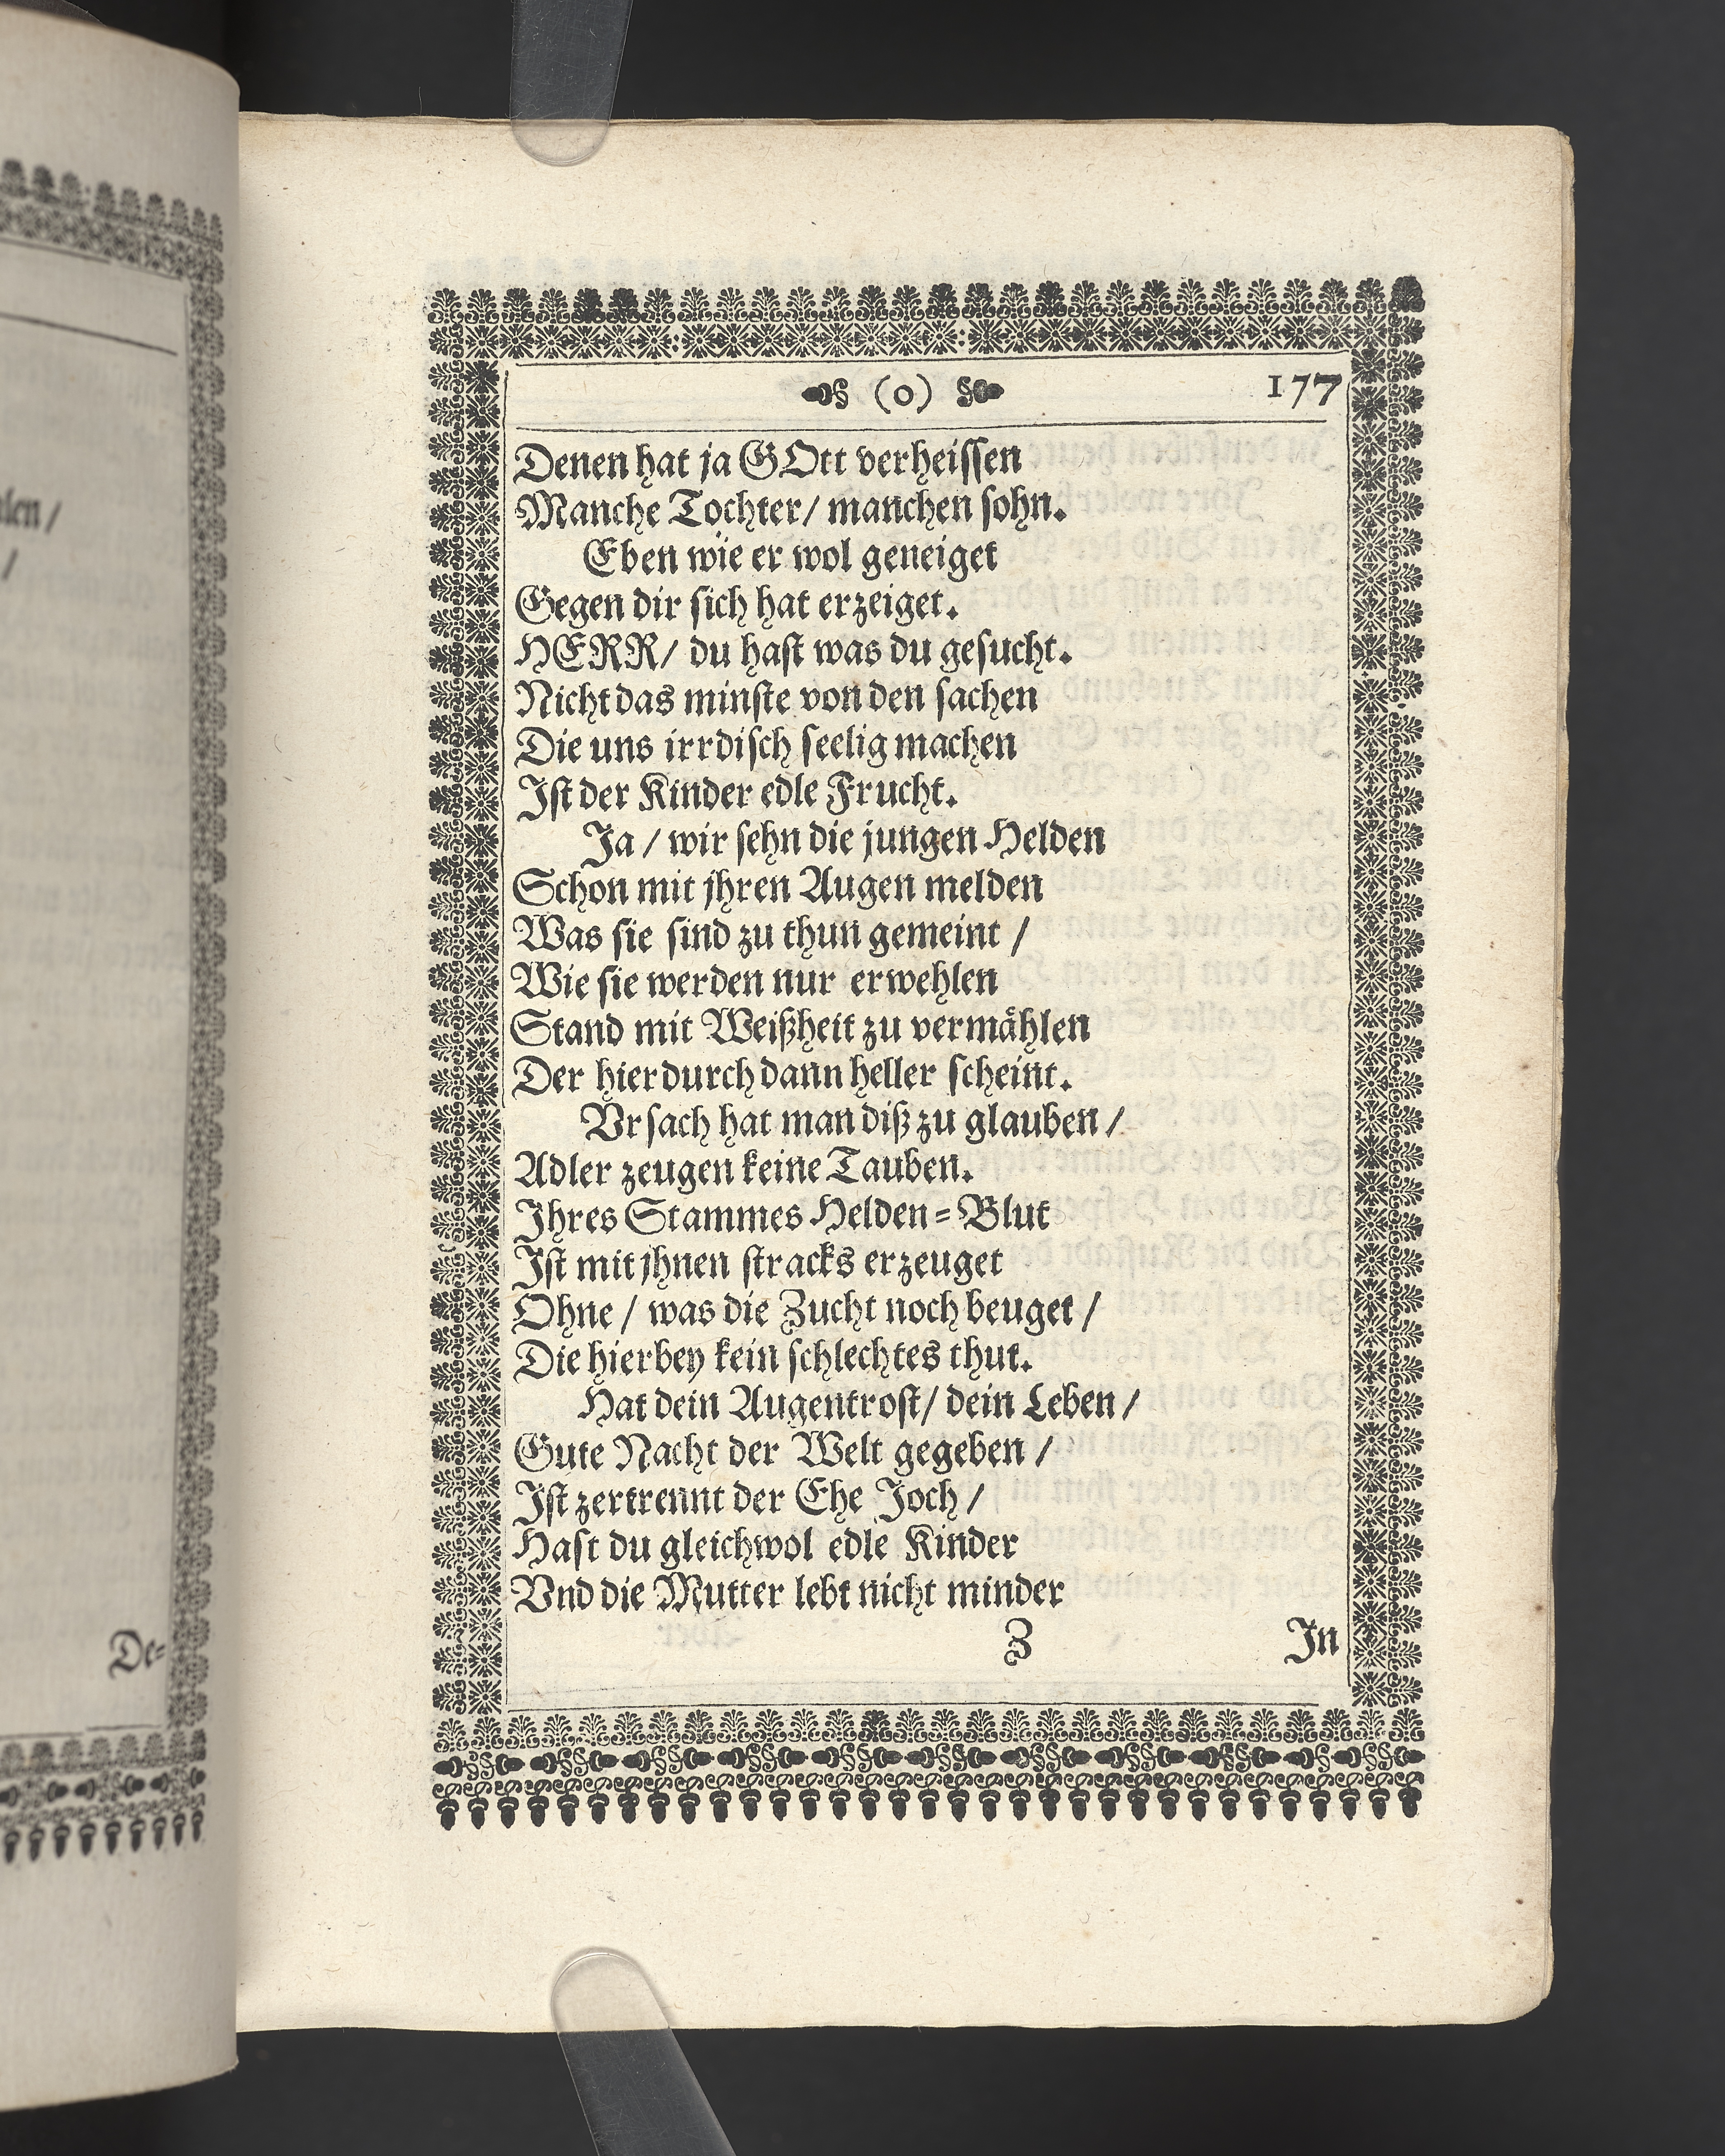 len /
/
De-
(0) 177
Denen hat ja GOtt verheissen
Manche Tochter/ manchen sohn.
Eben wie er wol geneiget
Gegen dir sich hat erzeiget.
HERR/ du hast was du gesucht.
Nicht das minste von den sachen
Die uns irrdisch seelig machen
Ist der Kinder edle Frucht.
Ja / wir sehn die jungen Helden
Schon mit jhren Augen melden
Was sie sind zu thun gemeint /
Wie sie werden nur erwehlen
Stand mit Weißheit zu vermählen
Der hierdurch dann heller scheint.
Vrsach hat man diß zu glauben /
Adler zeugen keine Tauben.
Ihres Stammes Helden-Blut
Ist mit jhnen stracks erzeuget
Ohne / was die Zucht noch beuget /
Die hierbey kein schlechtes thut.
Hat dein Augentrost/ dein Leben /
Gute Nacht der Welt gegeben /
Ist zertrennt der Ehe Joch /
Hast du gleichwol edle Kinder
Vnd die Mutter lebt nicht minder
Z In